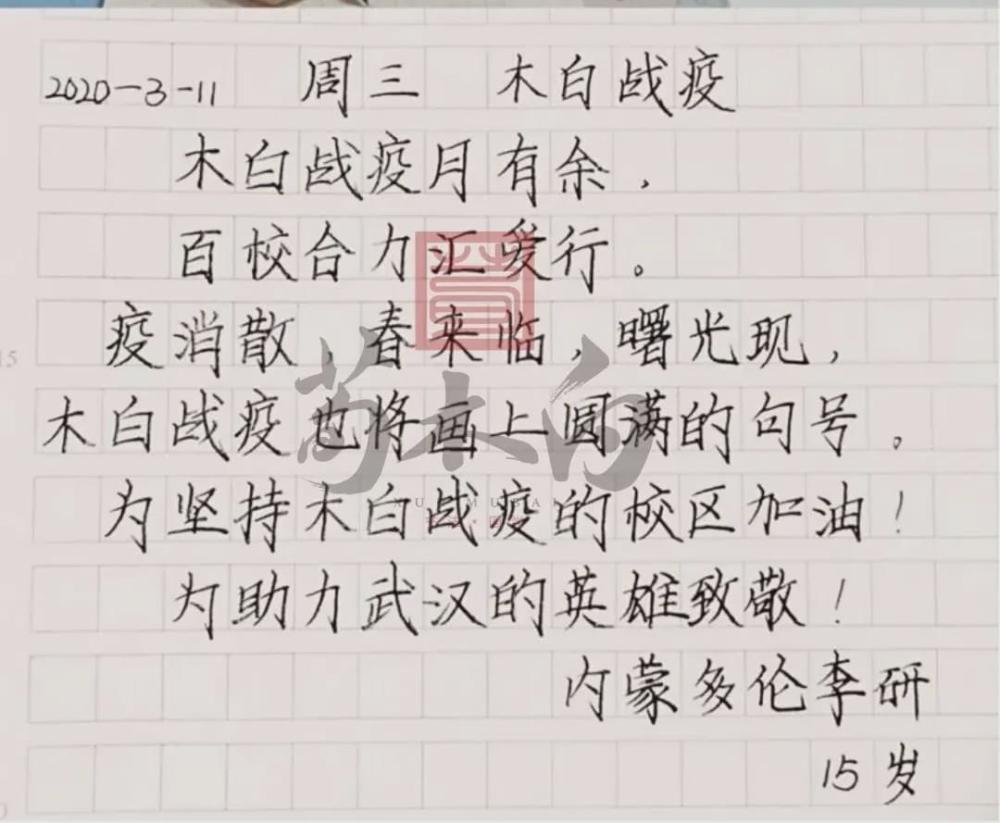 2020-3-11 周三 木白战疫
木白战疫月有余，
百校合力汇爱行。
疫消散，春来临，曙光现，
木白战疫也将画上圆满的句号。
为坚持木白战疫的校区加油！
为助力武汉的英雄致敬！
内蒙多伦李研
15岁